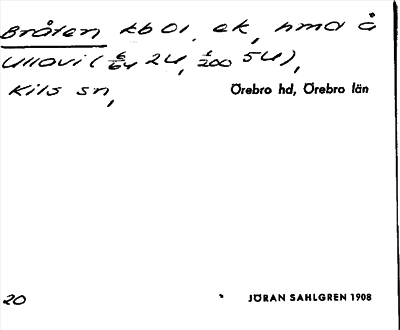 Bråten kb 01, ek, hmd å
Ullavi (6/64 24, 1/200 54),
Kils sn, Örebro hd, Örebro län
20 JÖRAN SAHLGREN 1908